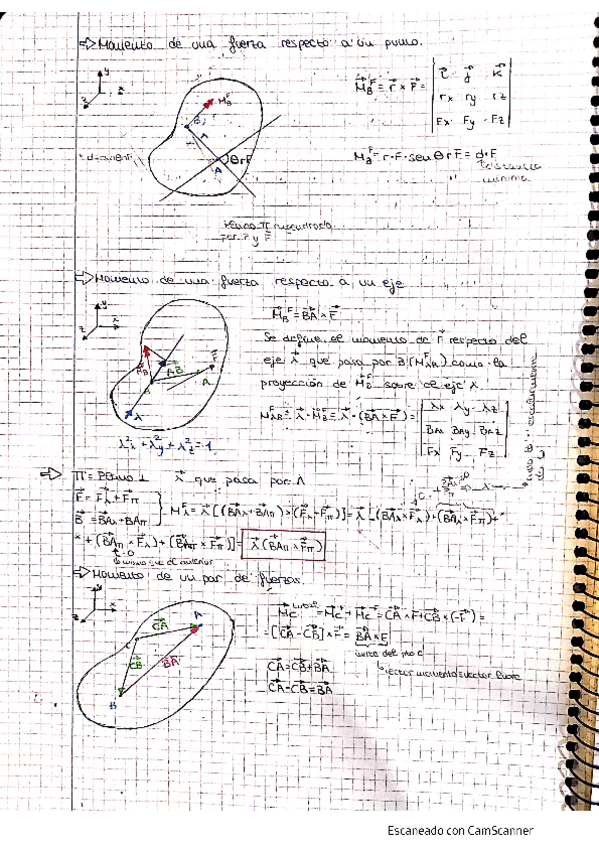 ⇒ Momento de una fuerza respecto a un punto.
y
z
x
M_B
B
A
θ
r
F
A
M_B^F = r × F = | i j k |
| rx ry rz |
| Fx Fy Fz |
M_B^F = r · F · sen θ r F = d · F
distancia
mínima
Plano π
por r y F
⇒ Momento de una fuerza respecto a un eje
y
x
z
M_B
AB
A
F
λ
λ²x + λ²y + λ²z = 1
M_B^F = BA × F
Se define el momento de F respecto del
eje λ que pasa por B (M_λB^F) como la
proyección de M_B^F sobre el eje λ.
M_λB^F = λ · M_B^F = λ · (BA × F) = | λx λy λz |
| BAx BAy BAz |
| Fx Fy Fz |
⇒ π = Plano ⊥ λ que pasa por A
F = Fλ + Fπ
B = BAλ + BAπ
M_λ^F = λ [(BAλ + BAπ) × (Fλ + Fπ)] = λ [(BAλ × Fλ) + (BAλ × Fπ) +
+ (BAπ × Fλ) + (BAπ × Fπ)] = λ (BAπ × Fπ)
0
lo mismo que el anterior
⇒ Momento de un par de fuerzas.
y
x
z
CA
A
CB
BA
B
Mc = Mc + Mc = CA × F + CB × (-F) =
= [CA - CB] × F = BA × F
CA = CB + BA
CA - CB = BA
vector momento = vector libre
Escaneado con CamScanner